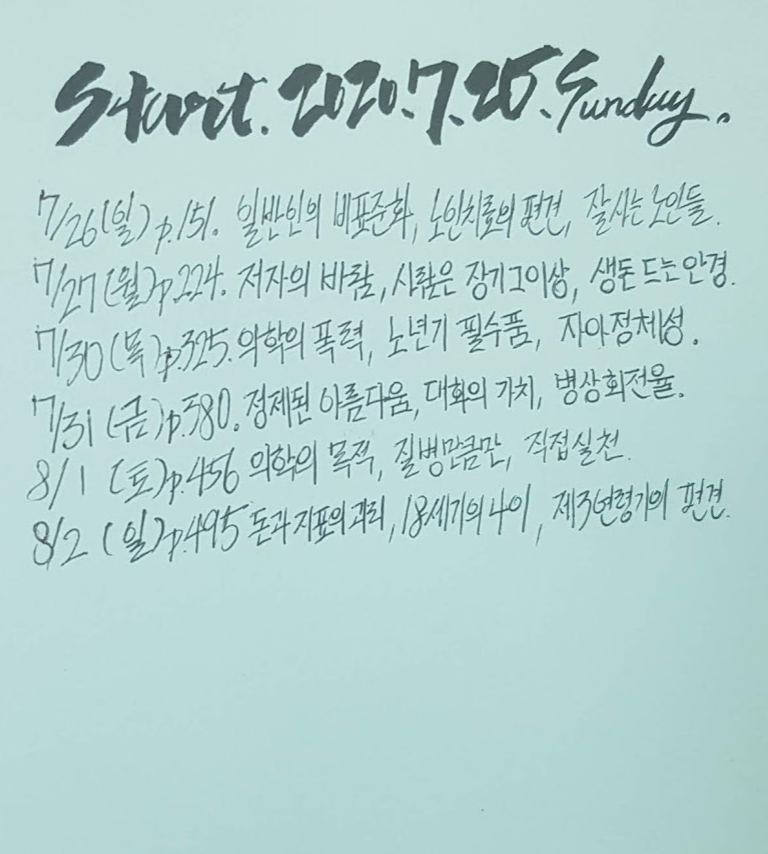 Start. 2020.7.25. Sunday.
7/26(일)p.151. 일반인의 비표준화, 노인치료의 편견, 잘사는 노인들.
7/27(월)p.224. 저자의 바람, 사람은 장기그이상, 생돈 드는안경.
7/30(목)p.325. 의학의 폭력, 노년기 필수품, 자아정체성.
7/31(금)p.380. 정제된 아름다움, 대화의 가치, 병상회전율.
8/1 (토)p.456 의학의 목적, 질병만큼만, 직접실천.
8/2 (일)p.495 돈과지표의괴리, 18세기의 나이, 제3연령기의 편견.